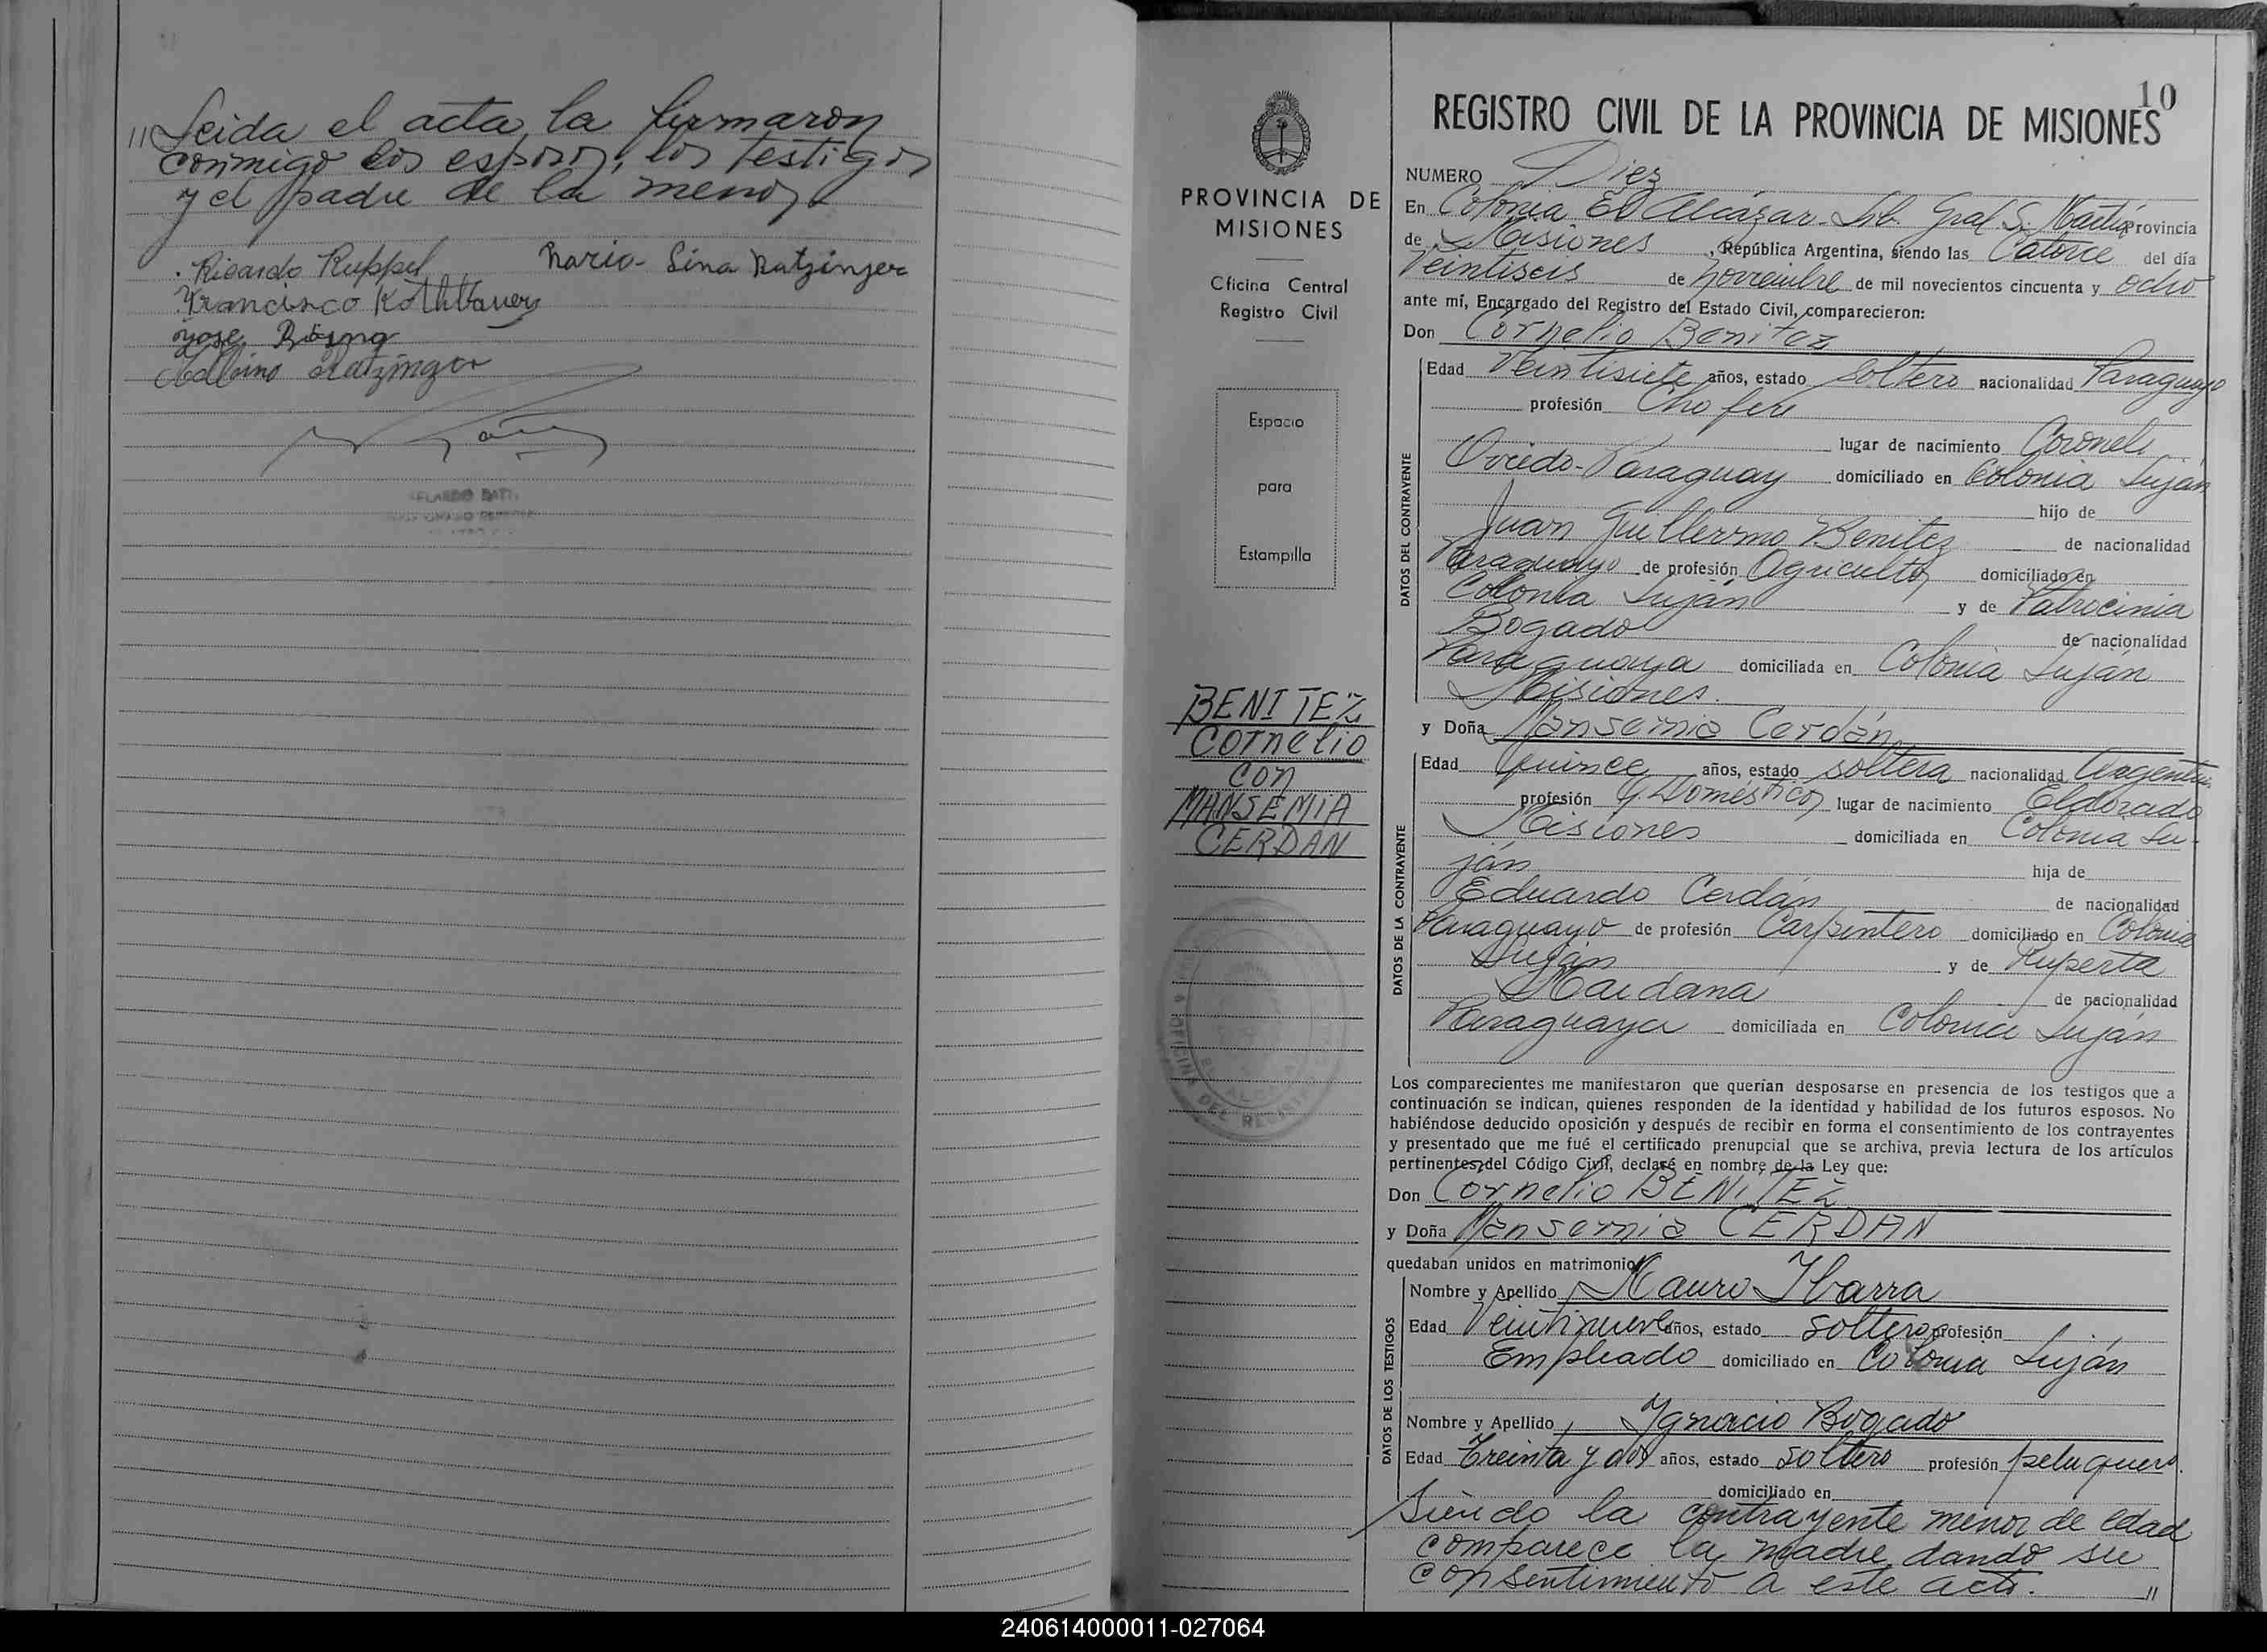 "Leida el acta, la firmaron
conmigo los esposos, los testigos
y el padre de la menor
Ricardo Ruppel
Maria - Lina Ratzinger
Francisco Kothbauer
Jose
Albino Ratzinger
10
REGISTRO CIVIL DE LA PROVINCIA DE MISIONES
PROVINCIA DE
MISIONES
Oficina Central
Registro Civil
Espacio
para
Estampilla
BENITEZ
Cornelio
con
MANSEMIA
CERDAN
NUMERO Diez
En Colonia El Alcázar - Lib. Gral. S. Martín Provincia
de Misiones, República Argentina, siendo las Catorce del día
Veintiseis de noviembre de mil novecientos cincuenta y ocho
ante mí, Encargado del Registro del Estado Civil, comparecieron:
Don Cornelio Benitez
DATOS DEL CONTRAYENTE
Edad Veintisiete años, estado Soltero nacionalidad Paraguayo
profesión Chofer
lugar de nacimiento Coronel
Oviedo - Paraguay domiciliado en Colonia Luján
hijo de
Juan Guillermo Benitez de nacionalidad
Paraguayo de profesión Agricultor domiciliado en
Colonia Luján y de Patrocinia
Bogado de nacionalidad
Paraguaya domiciliada en Colonia Luján
Misiones.
y Doña Mansemia Cerdán
DATOS DE LA CONTRAYENTE
Edad Quince años, estado soltera nacionalidad Argentina
profesión Q. Domésticos lugar de nacimiento Eldorado
Misiones domiciliada en Colonia Lu-
ján hija de
Eduardo Cerdán de nacionalidad
Paraguayo de profesión Carpintero domiciliado en Colonia
Luján y de Ruperta
Maidana de nacionalidad
Paraguaya domiciliada en Colonia Luján
Los comparecientes me manifestaron que querían desposarse en presencia de los testigos que a
continuación se indican, quienes responden de la identidad y habilidad de los futuros esposos. No
habiéndose deducido oposición y después de recibir en forma el consentimiento de los contrayentes
y presentado que me fué el certificado prenupcial que se archiva, previa lectura de los artículos
pertinentes del Código Civil, declaré en nombre de la Ley que:
Don Cornelio BENITEZ
y Doña Mansemia CERDAN
quedaban unidos en matrimonio
DATOS DE LOS TESTIGOS
Nombre y Apellido Mauro Ibarra
Edad Veintinueve años, estado soltero profesión
Empleado domiciliado en Colonia Luján
Nombre y Apellido Ygnacio Bogado
Edad Treinta y dos años, estado soltero profesión peluquero.
domiciliado en
Siendo la contrayente menor de edad
comparece la madre dando su
consentimiento a este acto. "
240614000011-027064